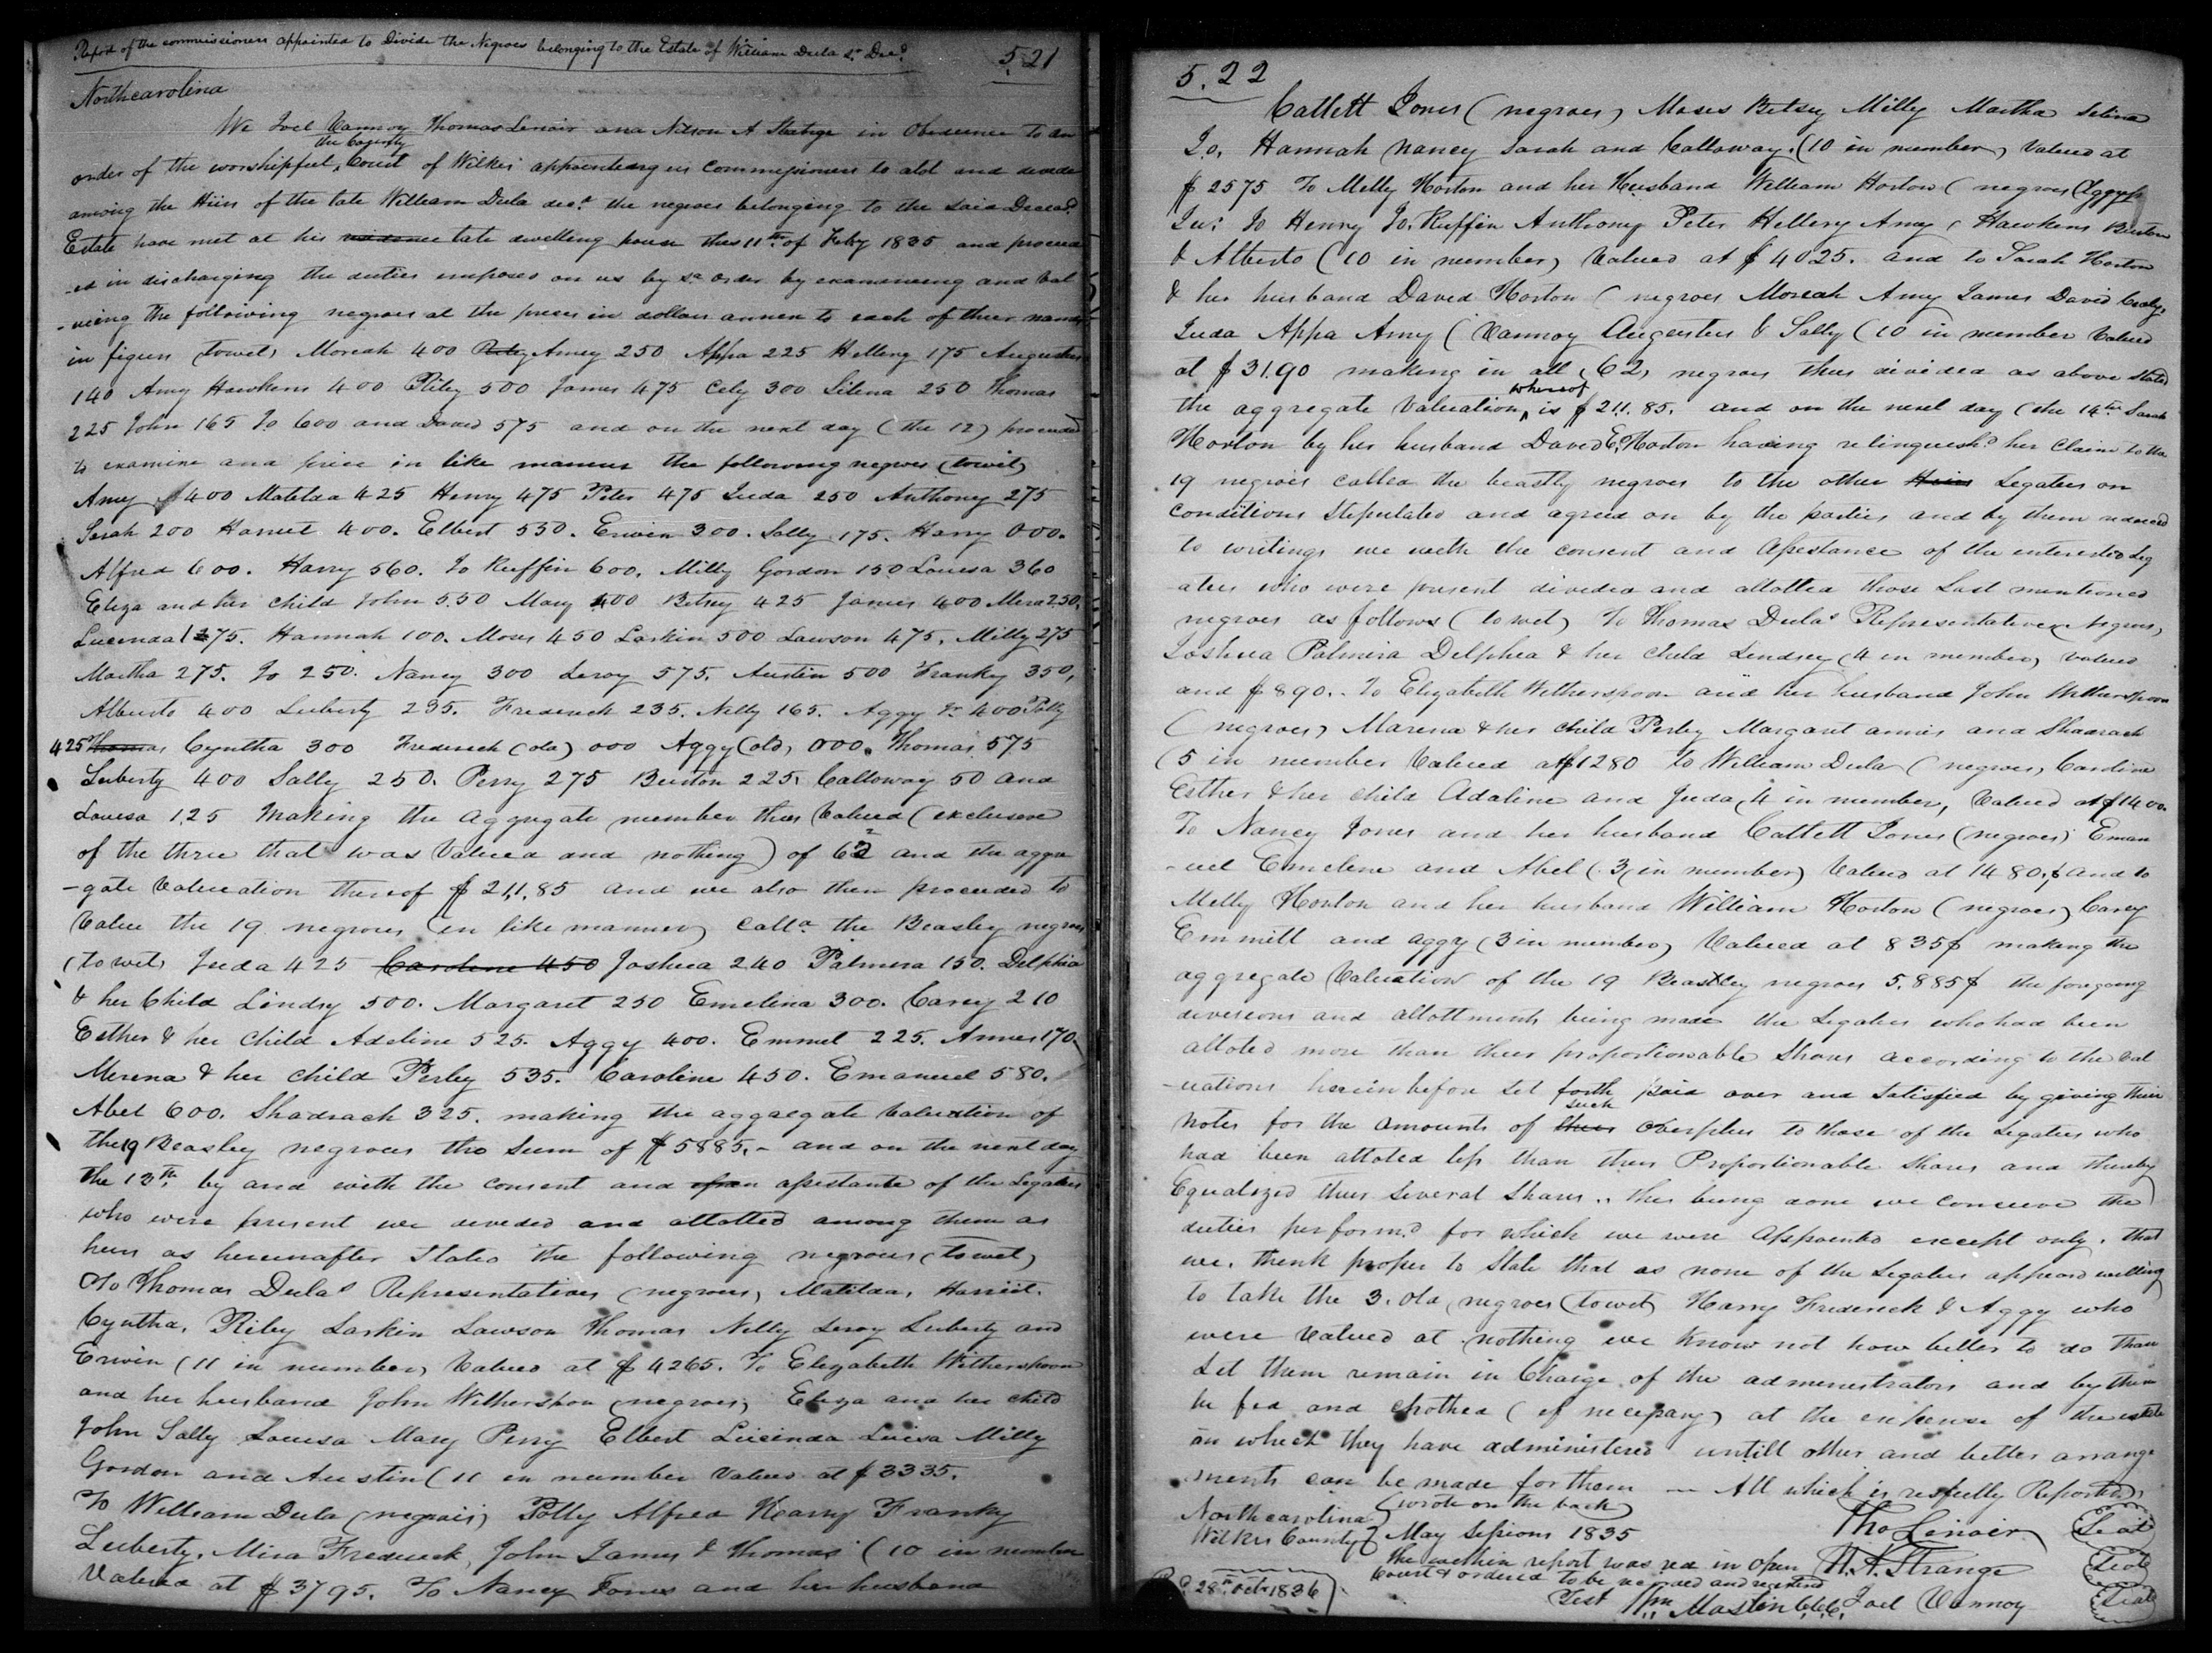 Report of the commissioners appointed to Divide the Negroes belonging to the Estate of William Dula Sr Decd.
521
Northcarolina
We Joel Vannoy Thomas Lenoir and Nelson A Strange in Obedience to an
the County
order of the worshipfull Court of Wilkes appointing us Commissioners to alot and devide
among the Heirs of the late William Dula decd. the negroes belonging to the said Deceasd.
Estate have met at his residence late dwelling house this 11th of Feby 1835 and proceed
-ed in discharging the duties imposed on us by sd order by examineing and val
-ueing the following negroes at the prices in dollars annex to each of their names
in figures (towit) Moreah 400 Riley Amey 250 Appa 225 Hellery 175 Augustus
140 Amy Hawkens 400 Riley 500 James 475 Cely 300 Selena 250 Thomas
225 John 165 Jo 600 and David 575 and on the next day (the 12) proceeded
to examine and price in like manner the following negroes (towit)
Amy $400 Matilda 425 Henry 475 Peter 475 Juda 250 Anthony 275
Sarah 200 Harriet 400. Elbert 550. Erwin 300. Sally 175. Harry 000.
Alfred 600. Harry 560. Jo Ruffin 600. Milly Gordon 150 Louesa 360
Eliza and her child John 550 Mary 400 Betsey 425 James 400 Mira 250.
Lucinda 175. Hannah 100. Moses 450 Larkin 500 Lawson 475. Milly 275
Martha 275. Jo 250. Nancy 300 Leroy 575. Austin 500 Franky 350,
Alberto 400 Luberty 235. Frederick 235. Nelly 165. Aggy Jr 400 Polly
425 Thomas Cyntha 300 Frederick (old) 000 Aggy (old) 000. Thomas 575
Luberty 400 Sally 250. Perry 275 Burton 225. Calloway 50 and
Louesa 125 making the aggregate number thus Valued (exclusive
of the three that was Valued and nothing) of 62 and the aggre
-gate valuation thereof $211,85 and we also then proceeded to
Value the 19 negroes (in like manner) calld. the Beasley negroes
(towit) Juda 425 Caroline 450 Joshua 240 Palmira 150. Delphia
& her Child Lindsy 500. Margaret 250 Emelina 300. Carey 210
Esther & her child Adeline 525. Aggy 400. Emmet 225. Annes 170.
Merena & her child Perley 535. Caroline 450. Emanuel 580.
Abel 600. Shadrach 325. making the aggregate valuation of
the 19 Beasley negroes the sum of $5885.- and on the next day
the 13th. by and with the consent and assistante of the Legatees
who were present we devided and allotted among them as
heirs as hereinafter Stated the following negroes (towit)
To Thomas Dulas Representatives (negroes) Matilda, Harriet.
Cyntha. Riley Larkin Lawson Thomas Nelly Leroy Luberty and
Erwin (11 in number) Valued at $4265. To Elizabeth Witherspoon
and her husband John Witherspon (negroes) Eliza and her child
John Sally Louesa Mary Perry Elbert Lucinda Luesa Milly
Gordon and Austin (11 in number Valued at $3335.
To William Dula (negroes) Polly Alfred Hearry Franky
Luberty. Mira Frederick, John James & Thomas (10 in number
Valued at $3795. To Nancy Jones and her husband
5.22
Catlett Jones (negroes) Moses Betsey Milly Martha Selina
Jo. Hannah Nancy Sarah and Calloway. (10 in number) Valued at
$2575 To Melly Horton and her Husband William Horton (negroes) Aggy
Jur. Jo Henry Jo. Ruffin Anthony Peter Hellery Amy (Hawkens Burton
& Alberto (10 in number) Valued at $4025. and to Sarah Horton
& her husband David Horton (negroes Moreah Amy James David Cealy,
Juda Appa Amy (Vannoy Augustus & Sally (10 in number Valued
at $31.90 making in all (62) negroes thus divided as above stated
whereof
the aggregate valuation is $211.85. and on the next day (the 14th Sarah
Horton by her husband David E. Horton having relinquish'd her claim to the
19 negroes called the beastly negroes to the other Heirs Legatees on
conditions Stipulated and agreed on by the parties and by them reduced
to writings we with the consent and Assistance of the interested Leg
-atees who were present devided and allotted those Last mentioned
negroes as follows (towit) To Thomas Dulas Representatives Negroes,
Joshua Palmira Delphia & her child Lindsey (4 in number) valued
and $890. To Elizabeth Witherspoon and her husband John Witherspoon
(negroes) Marena & her child Perley Margaret annis and Shadrach
(5 in number Valued at $1280 to William Dula (negroes, Caroline
Esther & her child Adaline and Juda, 4 in number, Valued at $1400.
To Nancy Jones and her husband Catlett Jones (negroes) Eman
-uel Emelene and Abel (3 (in number) Valued at 1480.$ and to
Melly Horton and her husband William Horton (negroes) Carey
Emmill and Aggy (3 in number) Valued at 835$ making the
aggregate valuation of the 19 Beastley negroes 5.885$ the foregoing
divisions and allottments being made the Legatees who had been
alloted more than their proportionable Shares according to the val
-uations herein before set forth paid over and Satisfied by giving their
such
notes for the amounts of their overplus to those of the Legatees who
had been alloted less than their Proportionable Shares and thereby
Equalized their Several Shares. this being done we conceive the
duties perform'd for which we were Appointed except only. that
we. think proper to State that as none of the Legatees appeard willing
to take the 3. old negroes (towit) Harry Frederick & Aggy who
were valued at nothing we know not how better to do than
Let them remain in Charge of the administrators and by them
be fed and clothed (if necessary) at the expense of the estate
on which they have administered untill other and better arrange
ments can be made for them — All which is resfully Reported
Northcarolina (wrote on the back)
Wilkes County } May Sessions 1835
The within report was red in open
Court & ordered to be recorded and registerd
Test Wm Mastin C.C.C.
28th Octr 1836
Tho Lenoir (Seal)
N. A. Strange (Seal)
Joel Vannoy (Seal)